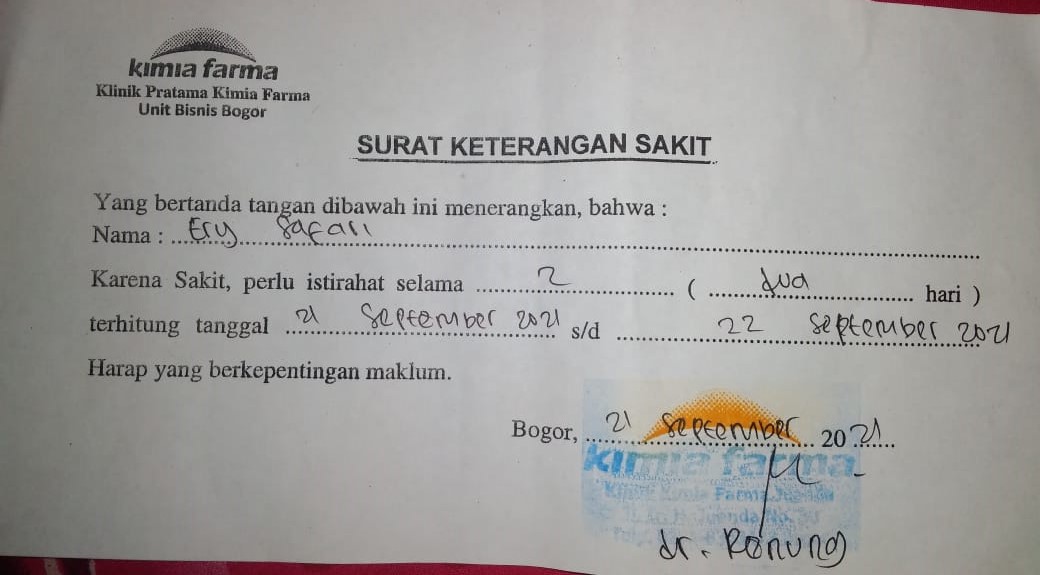 kimia farma
Klinik Pratama Kimia Farma
Unit Bisnis Bogor
SURAT KETERANGAN SAKIT
Yang bertanda tangan dibawah ini menerangkan, bahwa :
Nama : Ery Safari
Karena Sakit, perlu istirahat selama 2 ( dua hari )
terhitung tanggal 21 September 2021 s/d 22 September 2021
Harap yang berkepentingan maklum.
Bogor, 21 September 2021
kimia farma
Klinik Kimia Farma Juanda
Juanda No.
dr. Ronung